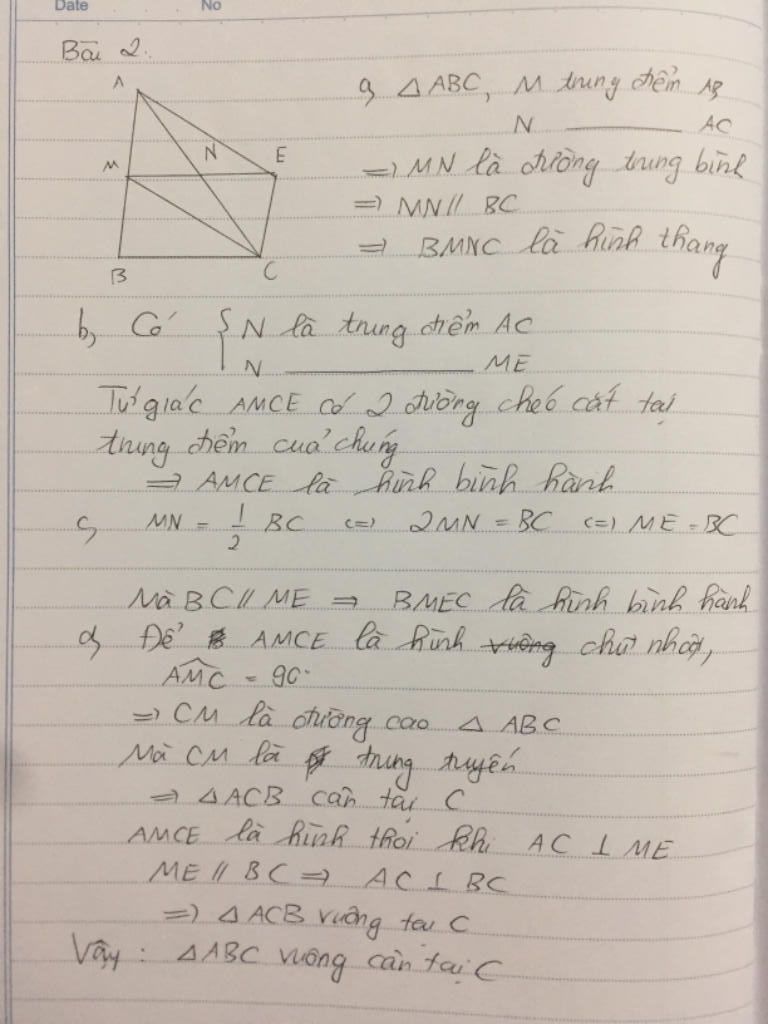 Date No
Bài 2.
A
M
N
E
B
C
a, △ABC, M trung điểm AB
N ———— AC
=> MN là đường trung bình
=> MN // BC
=> BMNC là hình thang
b, Có { N là trung điểm AC
N ———— ME
Tứ giác AMCE có 2 đường chéo cắt tại
trung điểm của chúng
=> AMCE là hình bình hành
c, MN = 1/2 BC <=> 2MN = BC <=> ME = BC
Mà BC // ME => BMEC là hình bình hành
d, Để AMCE là hình vuông chữ nhật,
AMC = 90°
=> CM là đường cao △ ABC
Mà CM là trung tuyến
=> △ACB cân tại C
AMCE là hình thoi khi AC ⊥ ME
ME // BC => AC ⊥ BC
=> △ACB vuông tại C
Vậy : △ABC vuông cân tại C